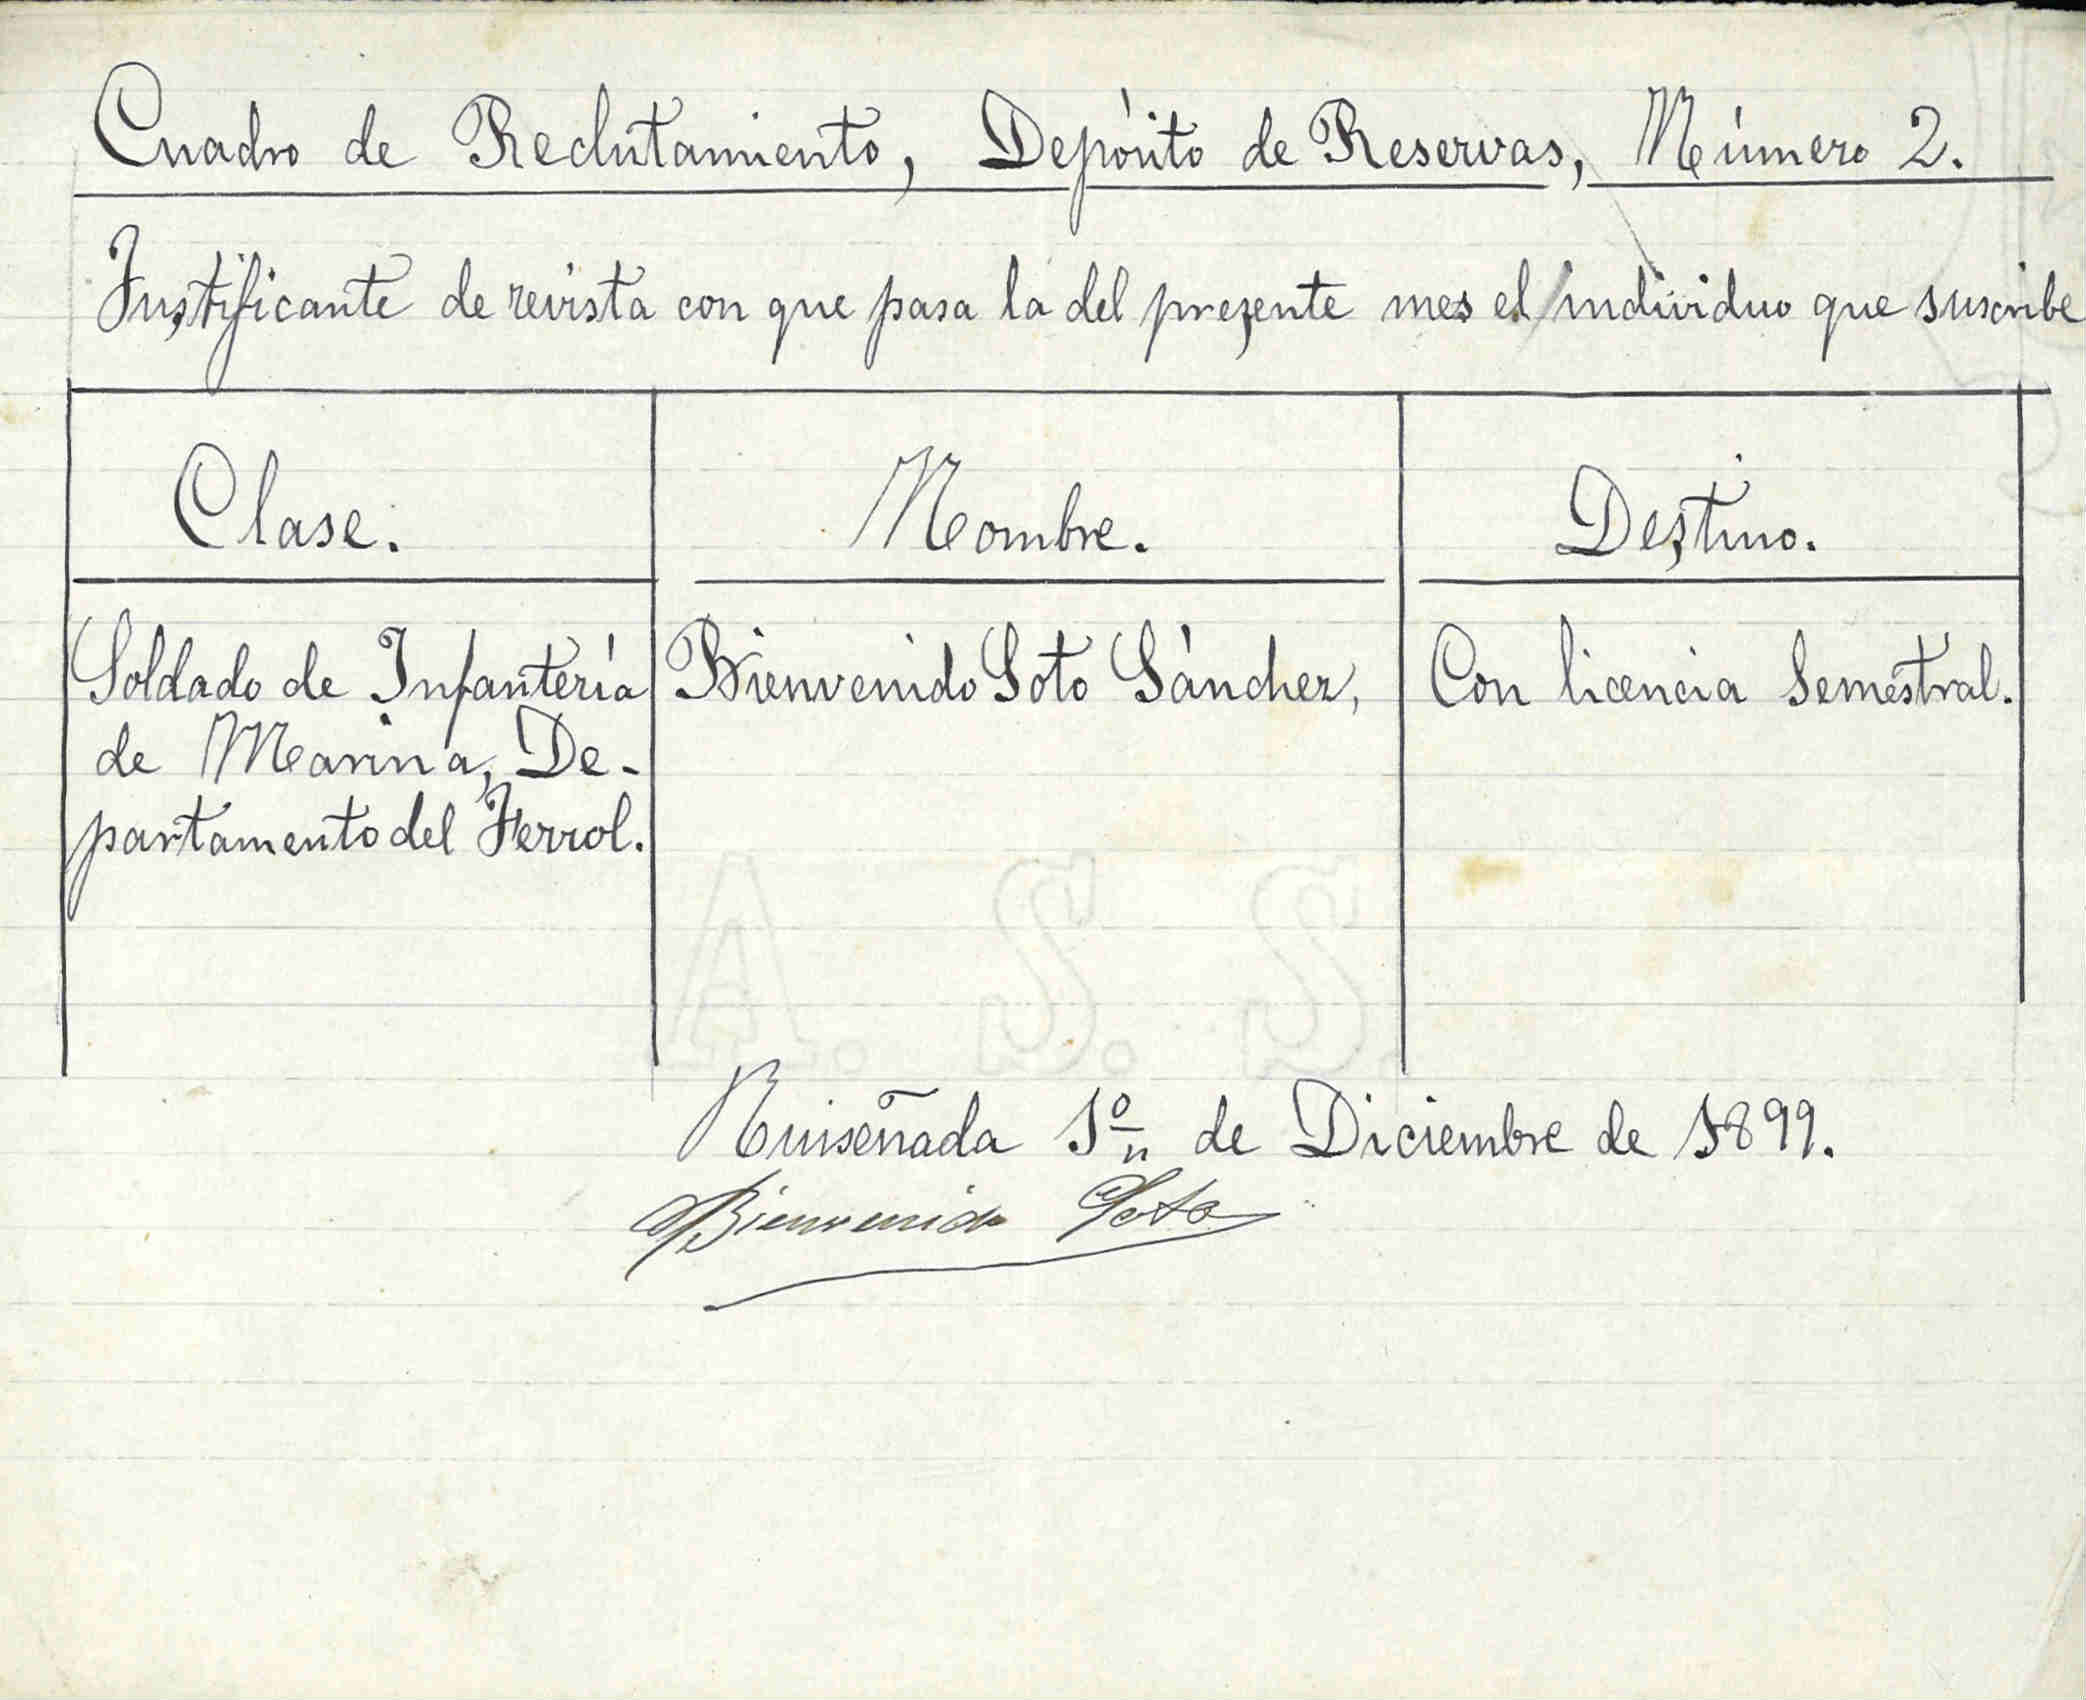 Cuadro de Reclutamiento, Depósito de Reservas, Número 2.
Justificante de revista con que pasa la del presente mes el individuo que suscribe
Clase. Nombre. Destino.
Soldado de Infantería Bienvenido Soto Sánchez, Con licencia Semestral.
de Marina, De-
partamento del Ferrol.
A. S. S.
Ruiseñada 1º de Diciembre de 1899.
Bienvenido Soto